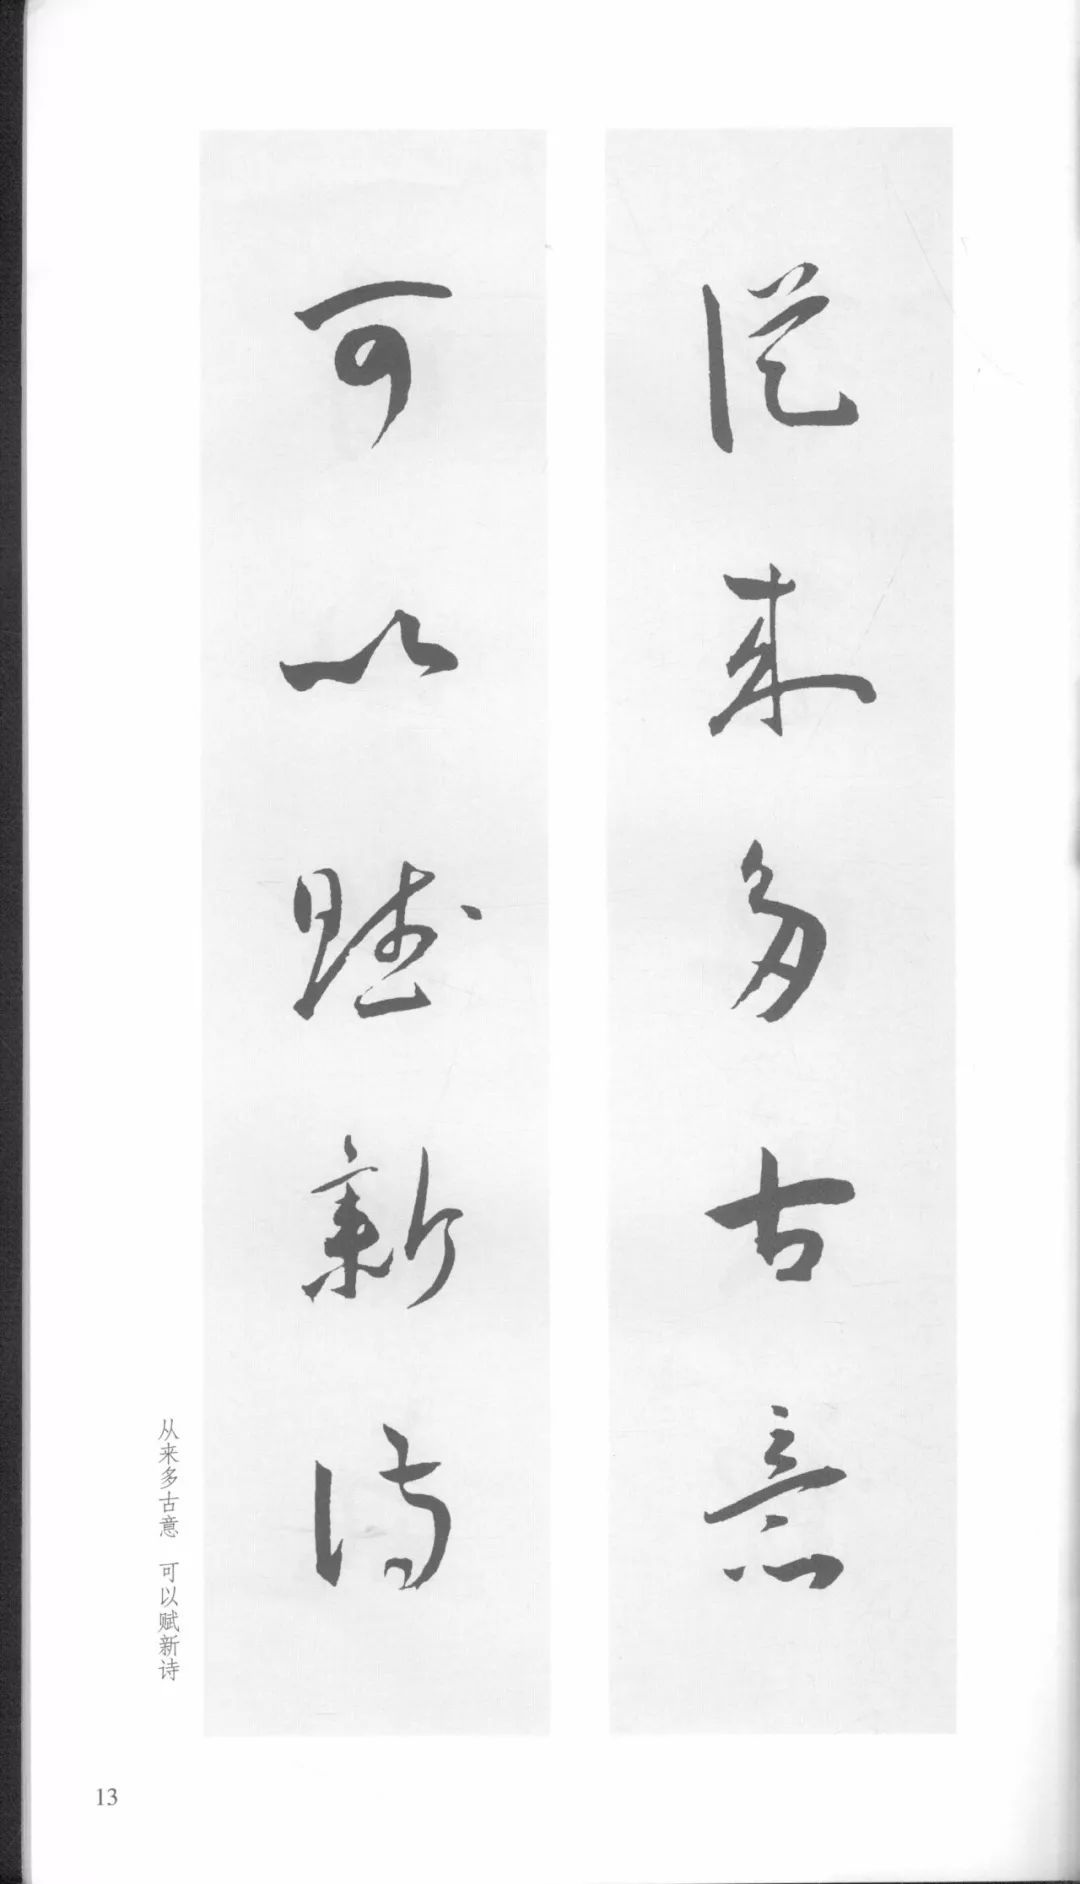 從来多古意
可以賦新詩
从来多古意 可以赋新诗
13